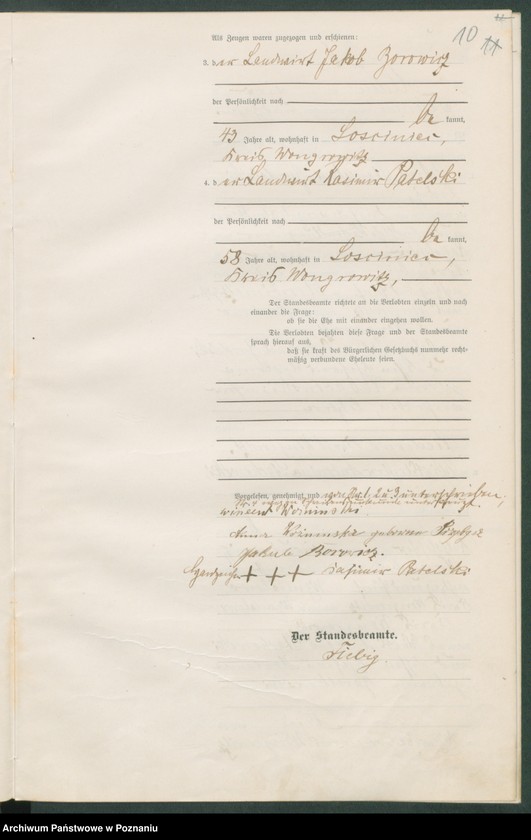 11
10 11
Als Zeugen waren zugezogen und erschienen:
3. der Landwirt Jakob Borowicz
der Persönlichkeit nach
be kannt,
43 Jahre alt, wohnhaft in Losciniec,
Kreis Wongrowitz
4. der Landwirt Kasimir Patelski
der Persönlichkeit nach
be kannt,
58 Jahre alt, wohnhaft in Losciniec,
Kreis Wongrowitz,
Der Standesbeamte richtete an die Verlobten einzeln und nach
einander die Frage:
ob sie die Ehe mit einander eingehen wollen.
Die Verlobten bejahten diese Frage und der Standesbeamte
sprach hierauf aus,
daß sie kraft des Bürgerlichen Gesetzbuchs nunmehr recht-
mäßig verbundene Eheleute seien.
Vorgelesen, genehmigt und von 1, 2 u 3 unterschrieben,
wincent
Anna geborene
Jakub Borowicz.
Handzeichen +++ Kasimir Patelski
Der Standesbeamte.
Fiebig
Archiwum Państwowe w Poznaniu